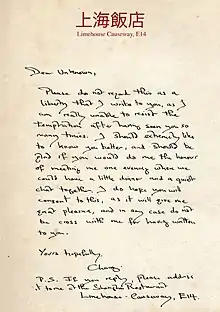 上海飯店
Limehouse Causeway, E14
Dear Unknown,
Please do not regard this as a
liberty that I write to you, as I
am really unable to resist the
temptation after having seen you so
many times. I should extremely like
to know you better, and should be
glad if you would do me the honour
of meeting me one evening when we
could have a little dinner and a quiet
chat together. I do hope you will
consent to this, as it will give me
great pleasure, and in any case do not
be cross with me for having written
to you.
Yours hopefully,
Chang.
P.S. If you reply, please address
it to me at the Shanghai Restaurant
Limehouse Causeway, E14.